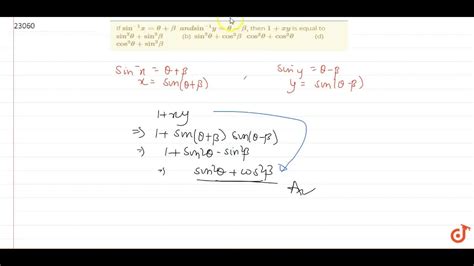 23060
If sin⁻¹x = θ + β and sin⁻¹y = θ − β, then 1 + xy is equal to
sin²θ + sin²β (b) sin²θ + cos²β cos²θ + cos²θ (d)
cos²θ + sin²β
sin⁻x = θ+β , sin⁻y = θ−β
x = sin(θ+β) y = sin(θ−β)
1+xy
⇒ 1 + sin(θ+β) sin(θ−β)
⇒ 1 + sin²θ − sin²β
⇒ sin²θ + cos²β
Ans
d